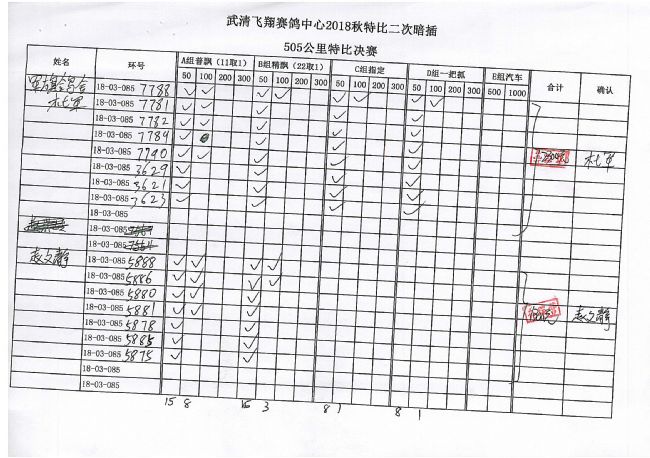 武清飞翔赛鸽中心2018秋特比二次暗插
505公里特比决赛
姓名 环号 A组普飘（11取1） B组精飘（22取1） C组指定 D组一把抓 E组汽车 合计 确认
50 100 200 300 50 100 200 300 50 100 200 300 50 100 200 300 500 1000
18-03-085 7788
杜军 18-03-085 7781
18-03-085 7782
18-03-085 7789
18-03-085 7790 杜军
18-03-085 3629
18-03-085 3621
18-03-085 3623
18-03-085
18-03-085
18-03-085
赵文静 18-03-085 5888
18-03-085 5886
18-03-085 5880
18-03-085 5881 赵文静
18-03-085 5878
18-03-085 5885
18-03-085 5875
18-03-085
18-03-085
15 8 15 3 8 1 8 1